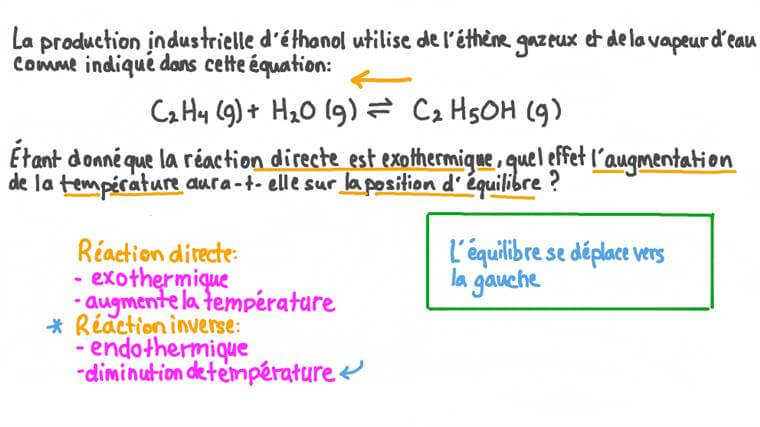 La production industrielle d'éthanol utilise de l'éthène gazeux et de la vapeur d'eau
comme indiqué dans cette équation:
C₂H₄ (g) + H₂O (g) ⇌ C₂H₅OH (g)
Étant donné que la réaction directe est exothermique, quel effet l'augmentation
de la température aura-t-elle sur la position d'équilibre ?
Réaction directe:
- exothermique
- augmente la température
* Réaction inverse:
- endothermique
- diminution de température
L'équilibre se déplace vers
la gauche